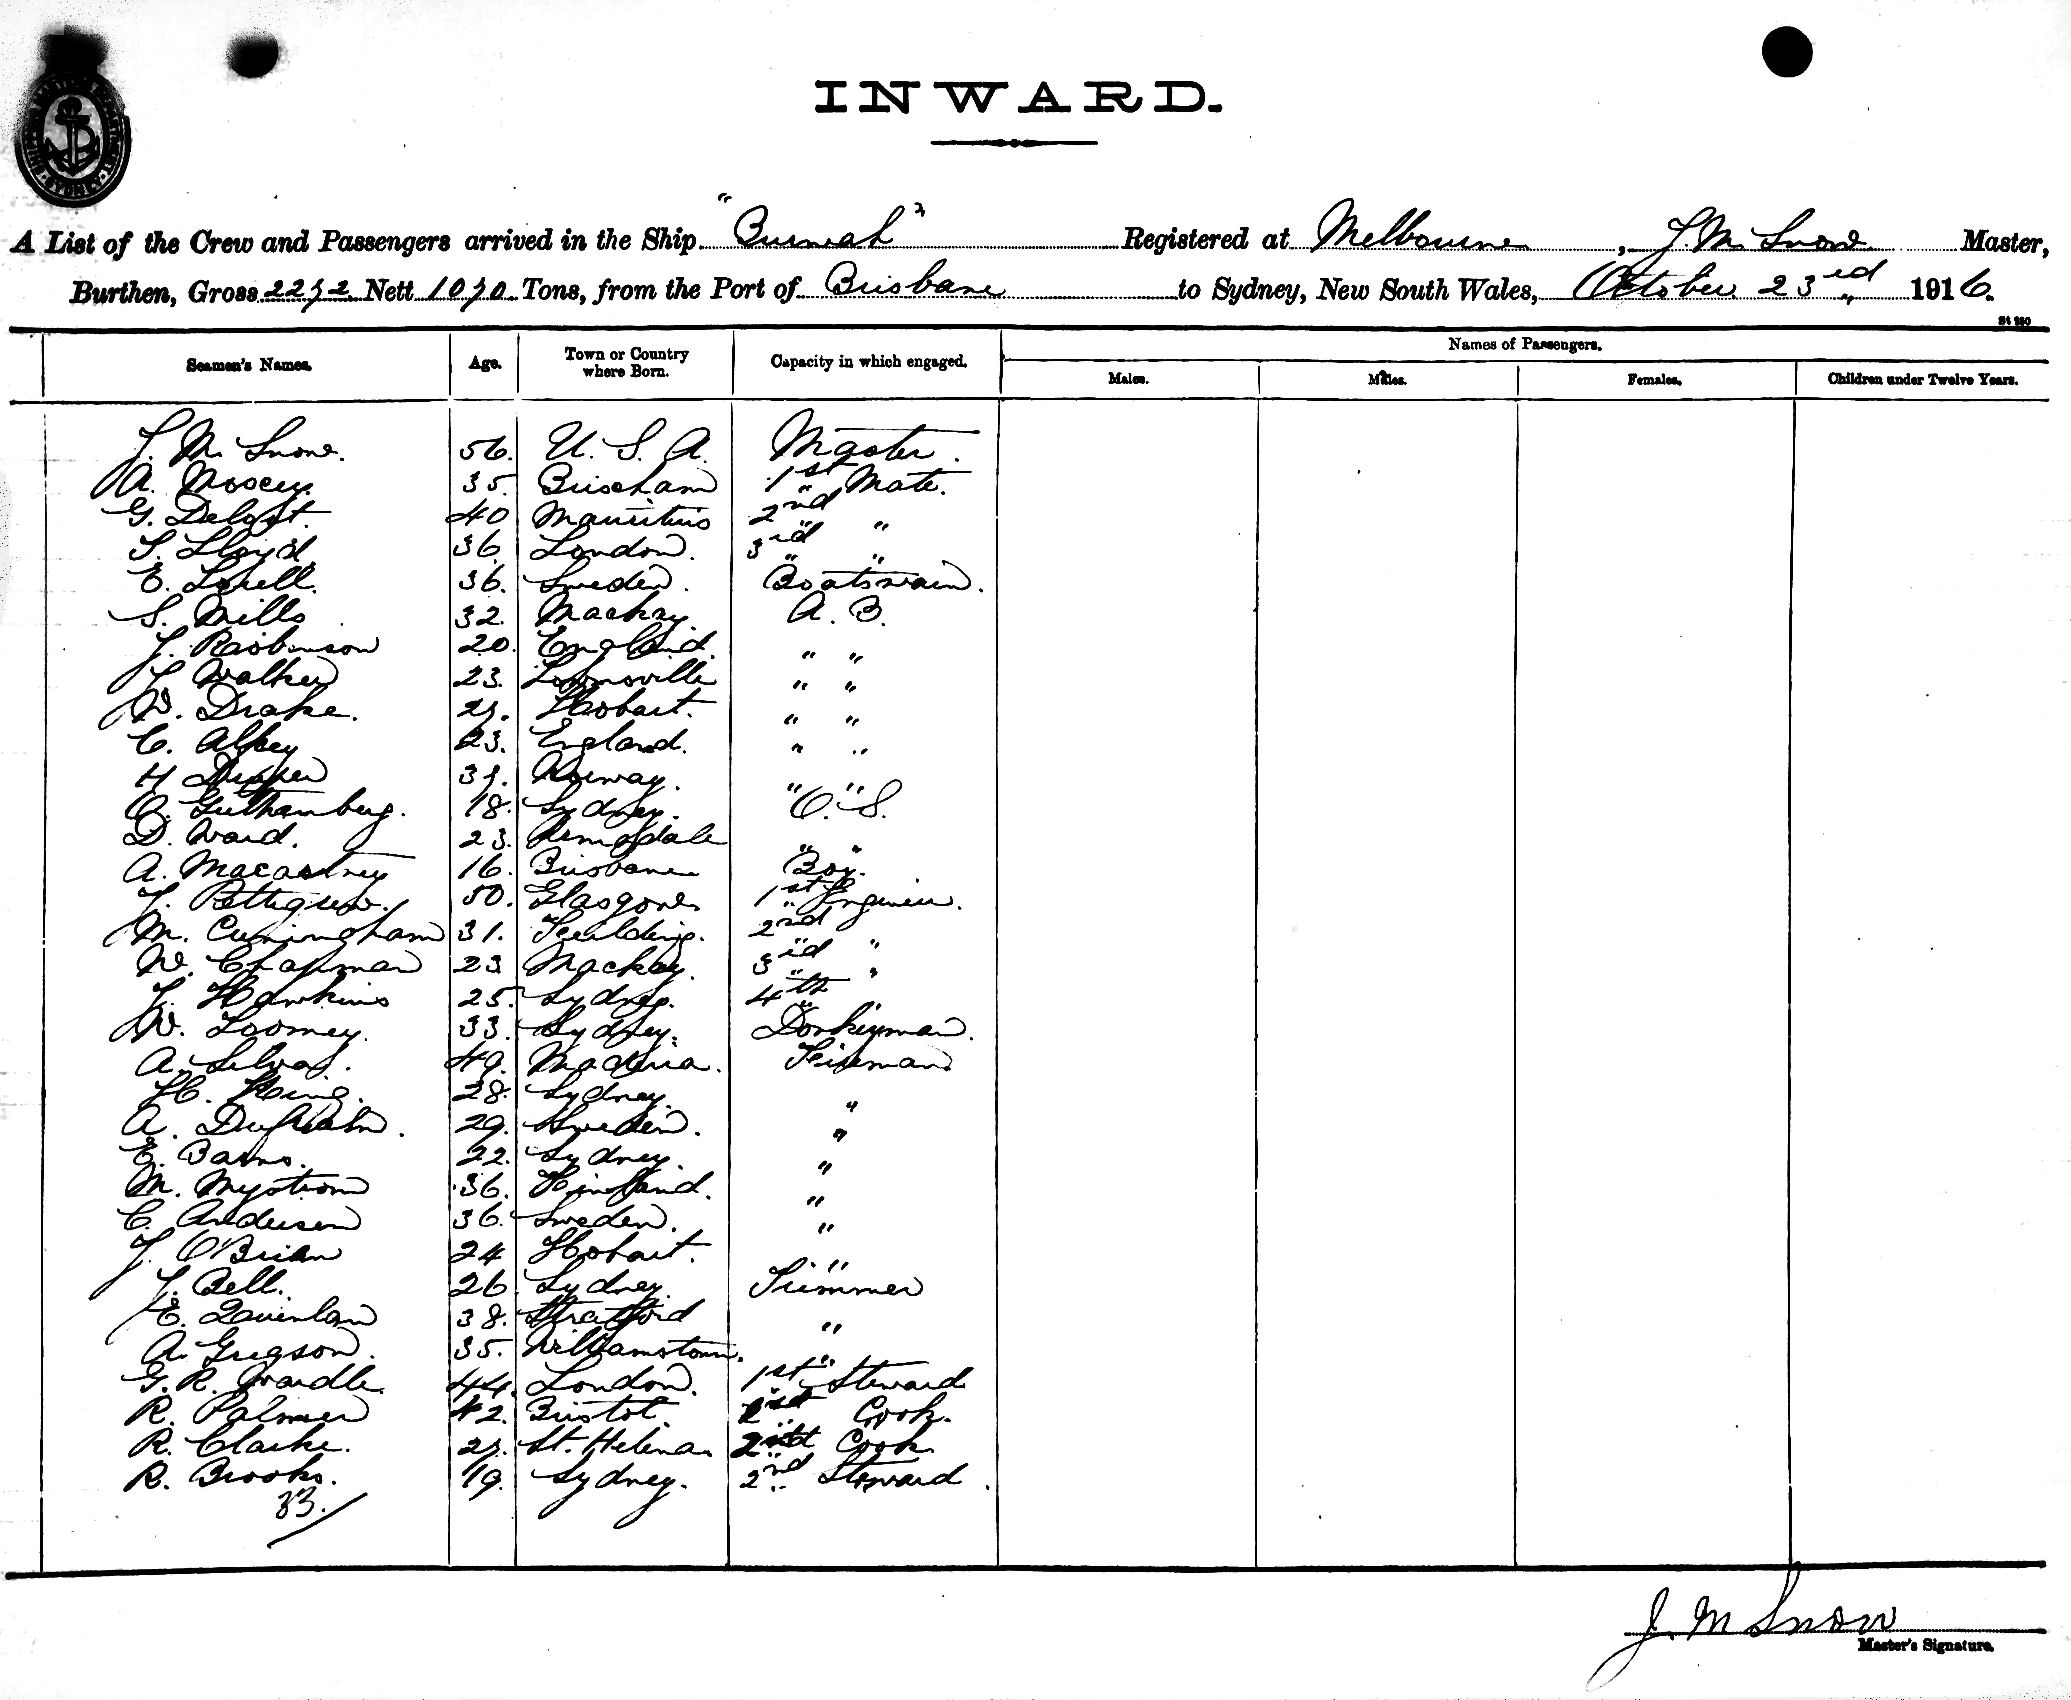 INWARD.
A List of the Crew and Passengers arrived in the Ship "Burwah" Registered at Melbourne, J. M. Snow Master,
Burthen, Gross 2272 Nett 1070 Tons, from the Port of Brisbane to Sydney, New South Wales, October 23rd 1916.
Seamen's Names. Age. Town or Country where Born. Capacity in which engaged. Names of Passengers.
Males. Males. Females. Children under Twelve Years.
J. M. Snow. 56. U. S. A. Master.
A. Mosey. 35. Brixham 1st Mate.
G. 40 Mauritius 2nd "
S. Lloyd 36. London. 3rd "
E. 36. Sweden. Boatswain.
S. Mills 32. Mackay. A. B.
J. Robinson 20. England. " "
J. Walker 23. " "
W. Drake. 27. Hobart. " "
C. 23. England. " "
H 37. Norway. " "
18. Sydney. O. S.
D. Ward. 23. " "
A. Macartney 16. Brisbane Boy.
J. Pettigrew. 50. Glasgow 1st Engineer.
M. Cunningham 31. 2nd "
W. Chapman 23 Mackay. 3rd "
J. Hawkins 25. Sydney. 4th "
W. Toomey. 33. Sydney. Donkeyman.
A. Silva. 49. Fireman
H. King. 28. Sydney. "
A. 29. Sweden. "
E. Barns. 22. Sydney. "
M. Nystrom 36. Finland. "
C. Andersen 36. Sweden. "
J. O'Brian 24 Hobart. "
J. Bell. 26 Sydney. Trimmer
E. Quinlan 38. Stratford "
A. Gregson. 35. Williamstown. "
G. R. Wardle. 44. London. 1st Steward
R. Palmer 42. Bristol. 1st Cook.
R. Clarke. 27. St. Helena 2nd Cook
R. Brooks. 19. Sydney. 2nd Steward.
33.
J. M Snow
Master's Signature.